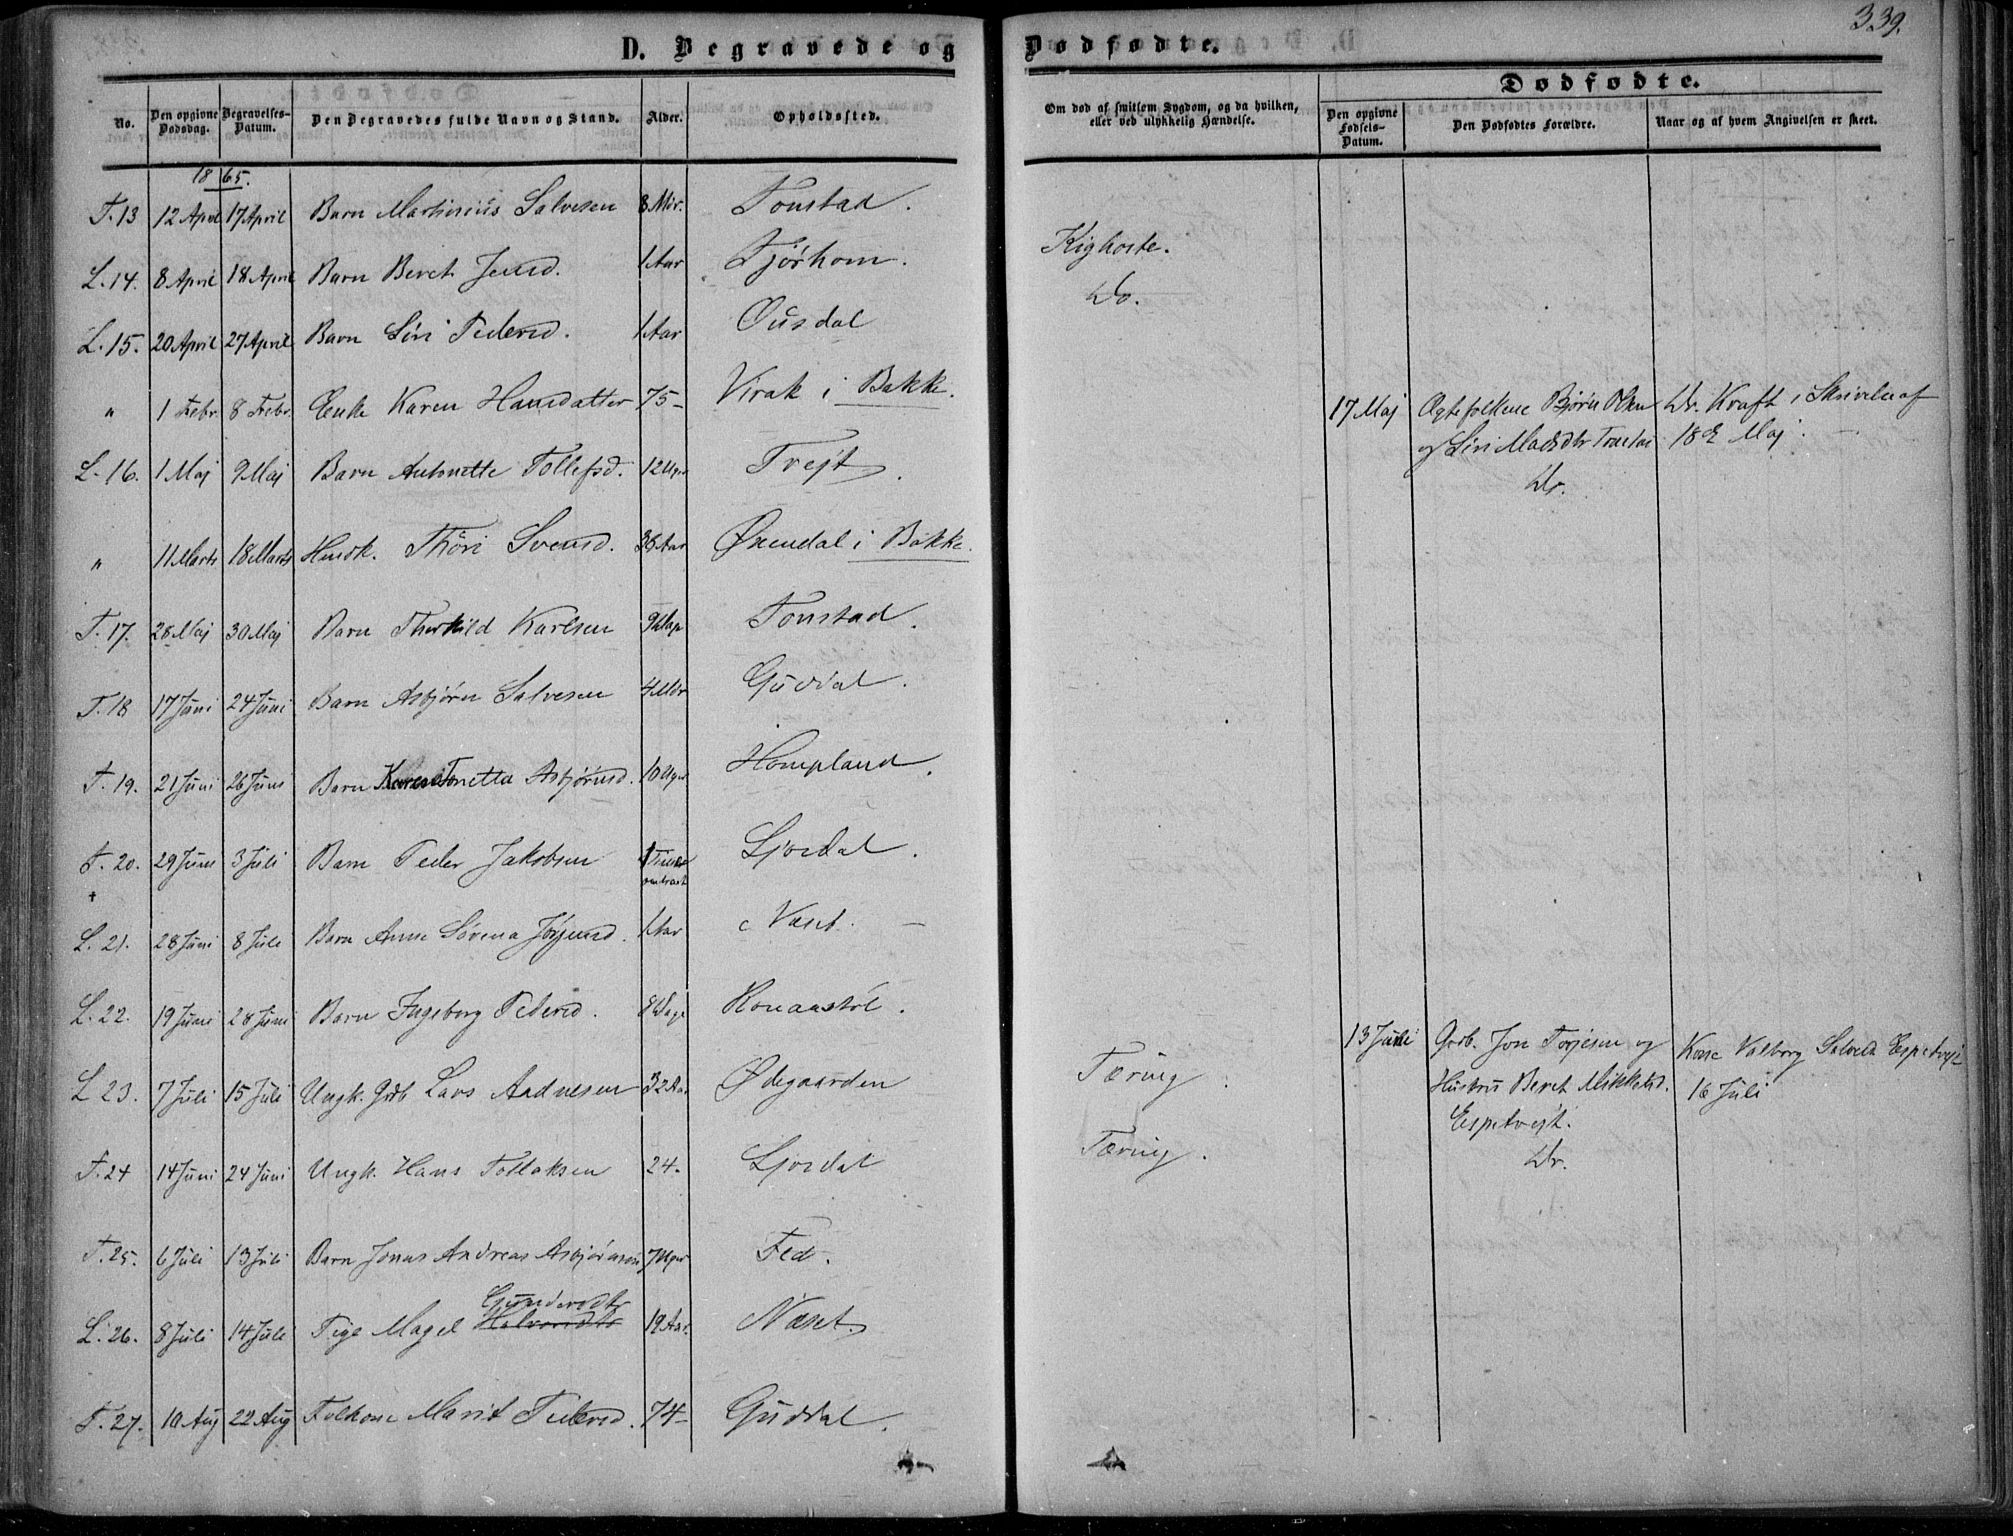 339.
D. Begravede og Dødfødte.
Dødfødte.
No. Den opgivne Dødsdag. Begravelses-Datum. Den Begravedes fulde Navn og Stand. Alder. Opholdssted. Om død af smitsom Sygdom, og da hvilken, eller ved ulykkelig Hændelse. Den opgivne Fødsels-Datum. Den Dødfødtes Forældre. Naar og af hvem Angivelsen er skeet.
1865.
T. 13 12 April 17 April Barn Martinius Salvesen 8 Mdr. Tonstad.
Kighoste.
L. 14. 8 April 18 April Barn Beret Jensd. 1 Aar Tjørhom.
Do.
L. 15. 20 April 27 April Barn Siri Pedersd. 1 Aar Ousdal
" 1 Febr. 8 Febr. Enke Karen Hansdatter 75- Virak i Bakke.
17 Maj Ægtefolkene Bjørn Olsen Dr. Kraft i Skrivelse af
og Siri Madsdtr Tonstad 18 Maj.
Dr.
L. 16. 1 Maj 9 Maj Barn Antonette Tollefsd. 12 Uger Trejt.
" 11 Marts 18 Marts Huusk. Thöri Svensd. 38 Aar Øxendal i Bakke.
T. 17. 28 Maj 30 Maj Barn Therkild Karlsen 9 Dage Tonstad.
T. 18 17 Juni 24 Juni Barn Asbjørn Salvesen 4 Mdr Guddal.
T. 19. 21 Juni 26 Juni Barn Karen Tonetta Asbjørnsd. 10 Uger Hompland.
T. 20. 29 Juni 3 Juli Barn Peder Jakobsen 1 Time omtrent Ljosdal.
+
L. 21. 28 Juni 8 Juli Barn Anne Sørena Jørgensd. 1 Aar Næset. -
L. 22. 19 Juni 28 Juni Barn Ingeborg Pedersd. 8 Dage Honaastöl.
13 Juli Grdb. Jon Torjesen og Kone Valborg Salvesd. Espetvejt
Hustru Beret Mikkelsd. 16 Juli
Espetvejt.
Dr.
L 23. 7 Juli 15 Juli Ungk. Grdb Lars Aadnesen 32 Aar Ødegaarden Tæring.
T. 24 14 Juni 24 Juni Ungk. Hans Tollaksen 24- Ljosdal Tæring.
T. 25. 6 Juli 13 Juli Barn Jonas Andreas Asbjørnsen 7 Uger Fed.
Gundersdtr
L. 26. 8 Juli 14 Juli Pige Magel Halvorsdtr 19 Aar. Næset.
T. 27. 10 Aug 22 Aug Folkone Marit Pedersd. 74- Guddal.